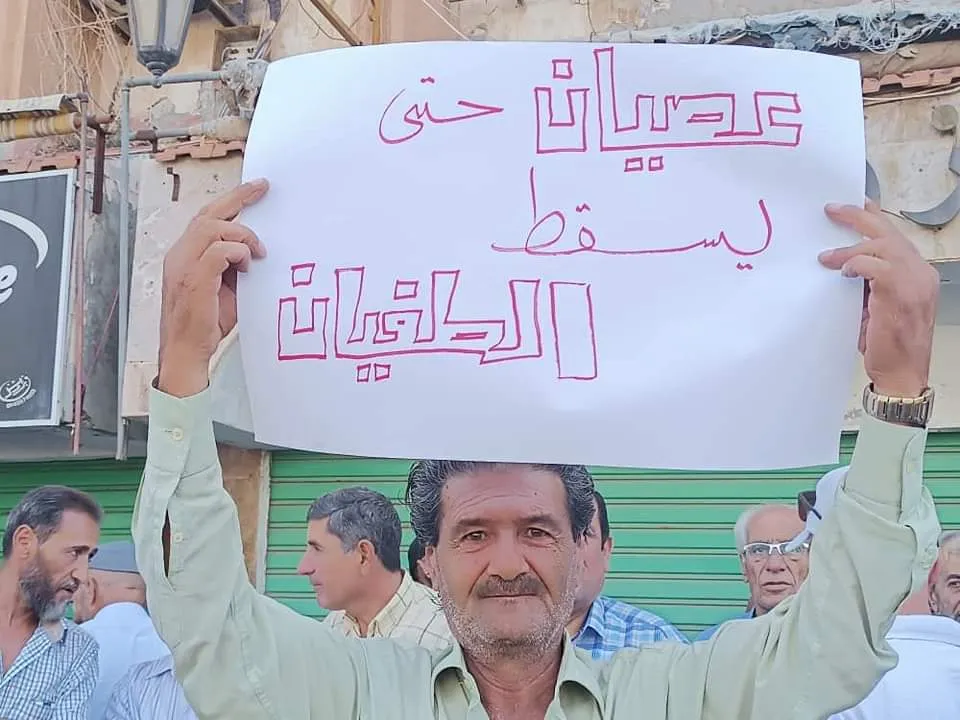 عصيان حتى
يسقط
الطغيان